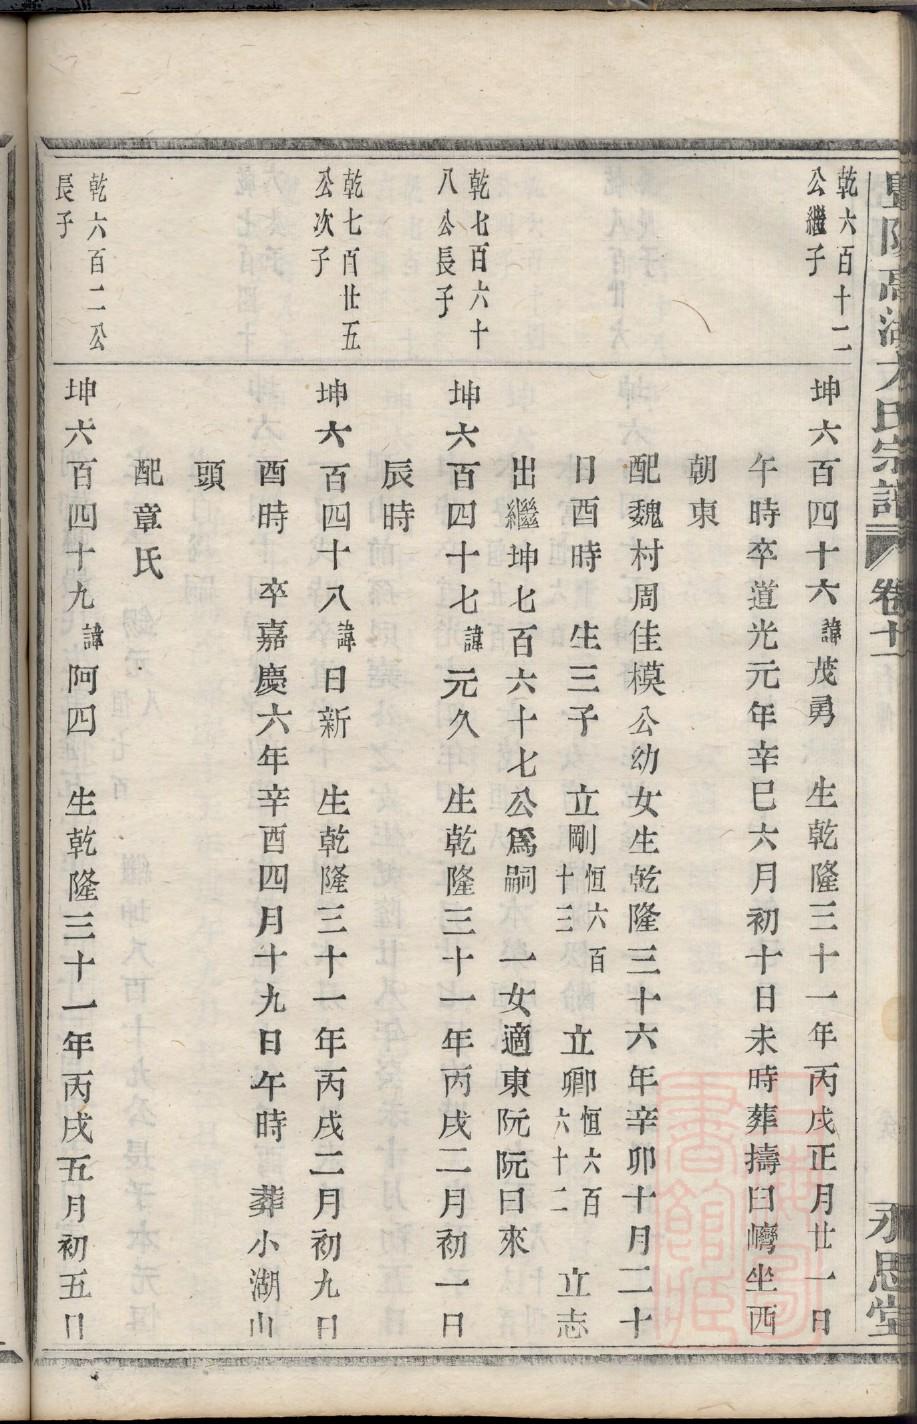 高湖方氏宗譜
卷十一
永思堂
乾六百十二
公繼子
坤六百四十六諱茂勇 生乾隆三十一年丙戌正月廿一日
午時卒道光元年辛巳六月初十日未時葬擣臼嶹坐西
朝東
配魏村周佳模公幼女生乾隆三十六年辛卯十月二十
日酉時 生三子 立剛恒六百十三 立卿恒六百六十二 立志
出繼坤七百六十七公爲嗣 一女適東阮阮曰來
乾七百六十
八公長子
坤六百四十七諱元久 生乾隆三十一年丙戌二月初一日
辰時
乾七百廿五
公次子
坤六百四十八諱日新 生乾隆三十一年丙戌二月初九日
酉時 卒嘉慶六年辛酉四月十九日午時 葬小湖山
頭
配章氏
乾六百二公
長子
坤六百四十九諱阿四 生乾隆三十一年丙戌五月初五日